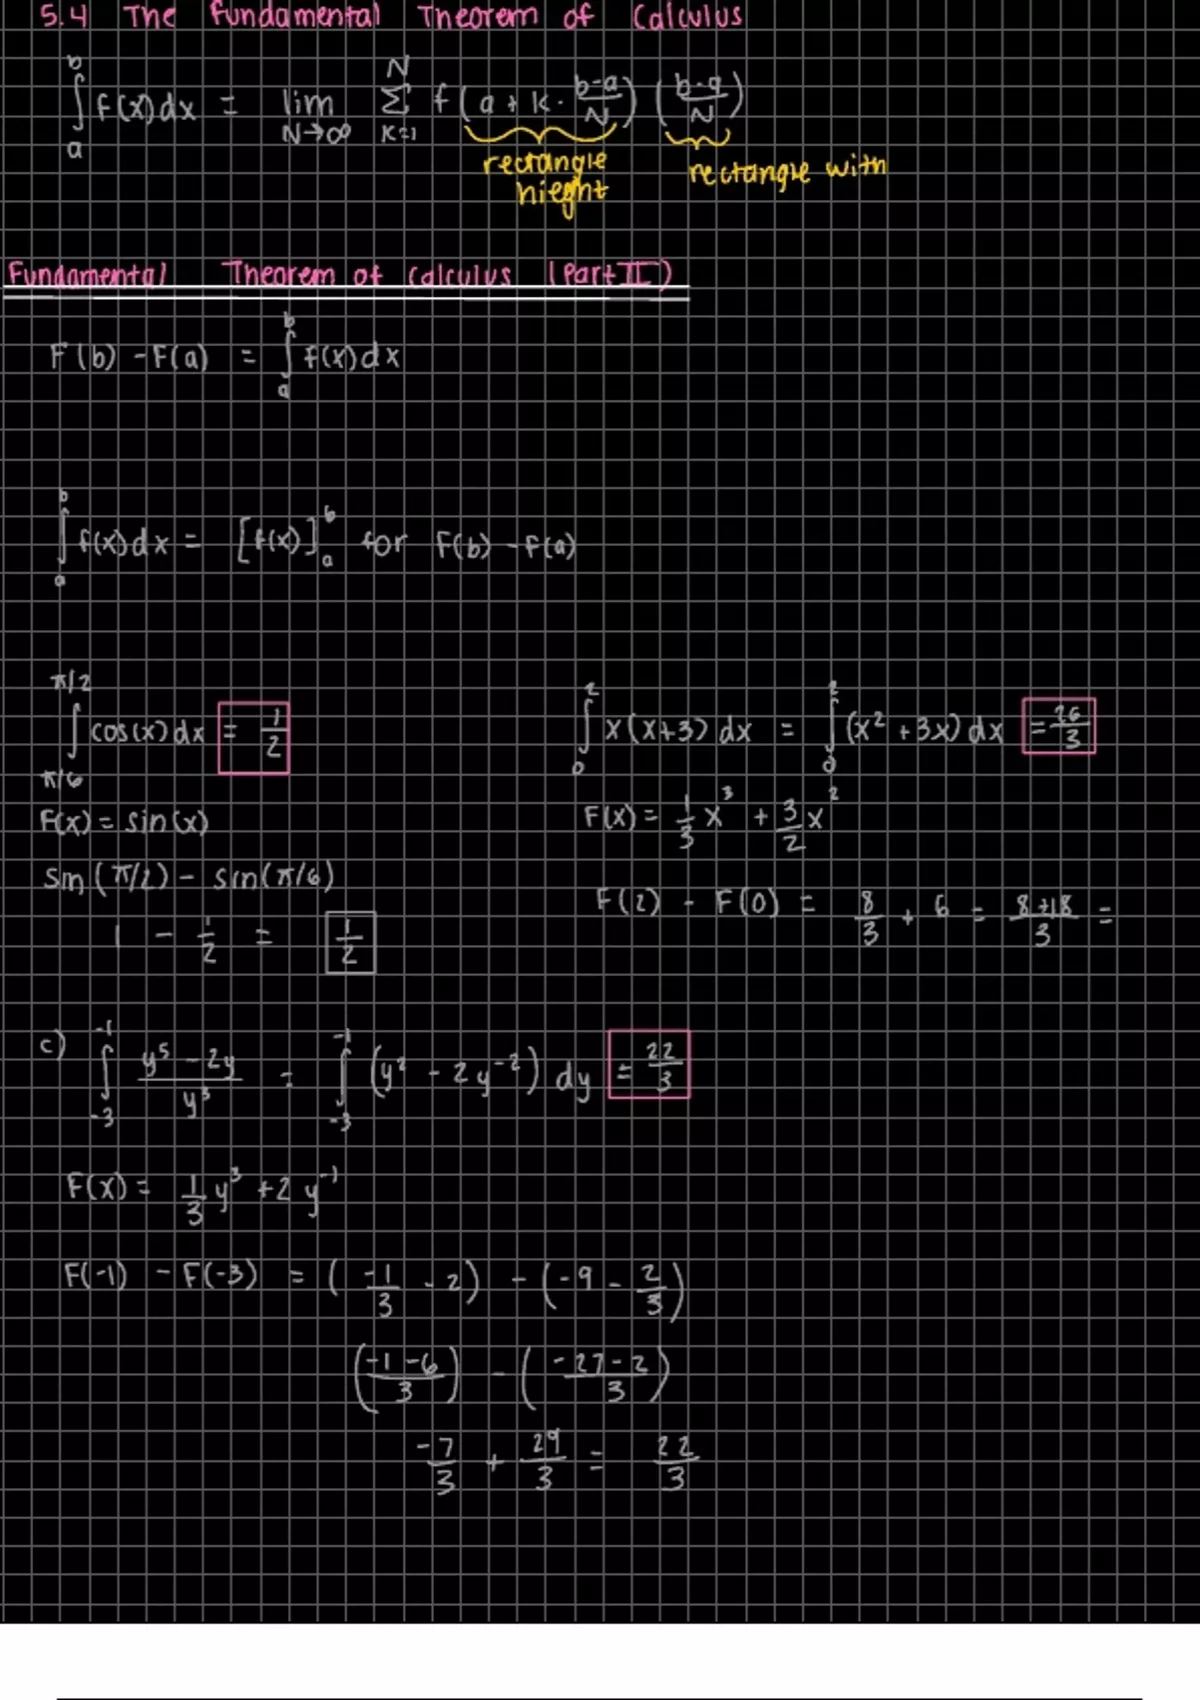 5.4 The Fundamental Theorem of Calculus
∫_a^b f(x)dx = lim_{N→∞} Σ_{K=1}^N f(a + k · (b-a)/N) ((b-a)/N)
rectangle hieght
rectangle with
Fundamental Theorem of Calculus (Part II)
F(b) - F(a) = ∫_a^b f(x)dx
∫_a^b f(x)dx = [f(x)]_a^b for F(b) - F(a)
∫_{π/6}^{π/2} cos(x)dx = 1/2
F(x) = sin(x)
sin(π/2) - sin(π/6)
1 - 1/2 = 1/2
∫_0^2 x(x+3)dx = ∫_0^2 (x² + 3x)dx = 26/3
F(x) = 1/3 x³ + 3/2 x²
F(2) - F(0) = 8/3 + 6 = (8+18)/3 =
c) ∫_{-3}^{-1} (y⁵ - 2y)/y³ = ∫_{-3}^{-1} (y² - 2y⁻²) dy = 22/3
F(x) = 1/3 y³ + 2y⁻¹
F(-1) - F(-3) = (-1/3 - 2) - (-9 - 2/3)
((-1-6)/3) - ((-27-2)/3)
-7/3 + 29/3 = 22/3